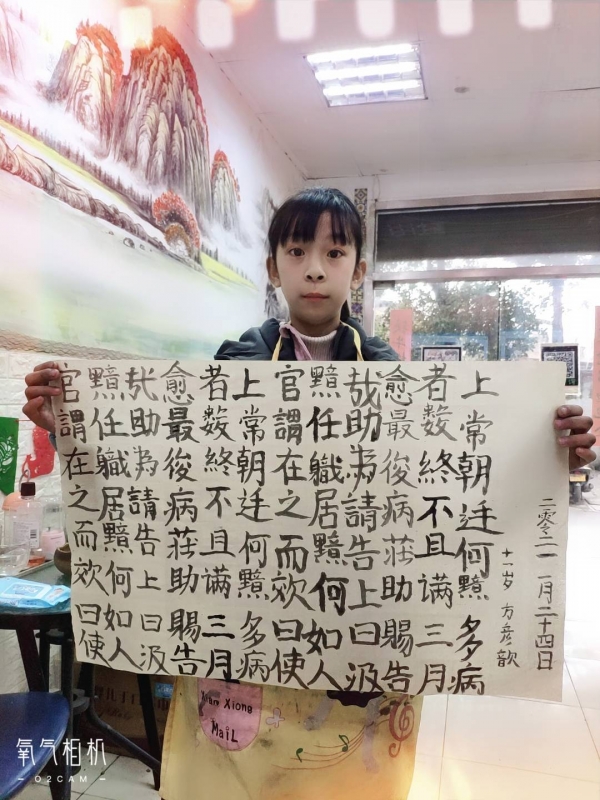 二零二一 一月二十四日
十一岁 方彦歆
上常朝廷何黯多病
者數終不且满三月
愈最後病莊助賜告
哉助為請告上曰汲
黯任職居黯何如人
官謂在之而欬曰使
上常朝廷何黯多病
者數終不且满三月
愈最後病莊助賜告
哉助為請告上曰汲
黯任職居黯何如人
官謂在之而欬曰使
Xiong
MaiL
氧气相机
- O2CAM -